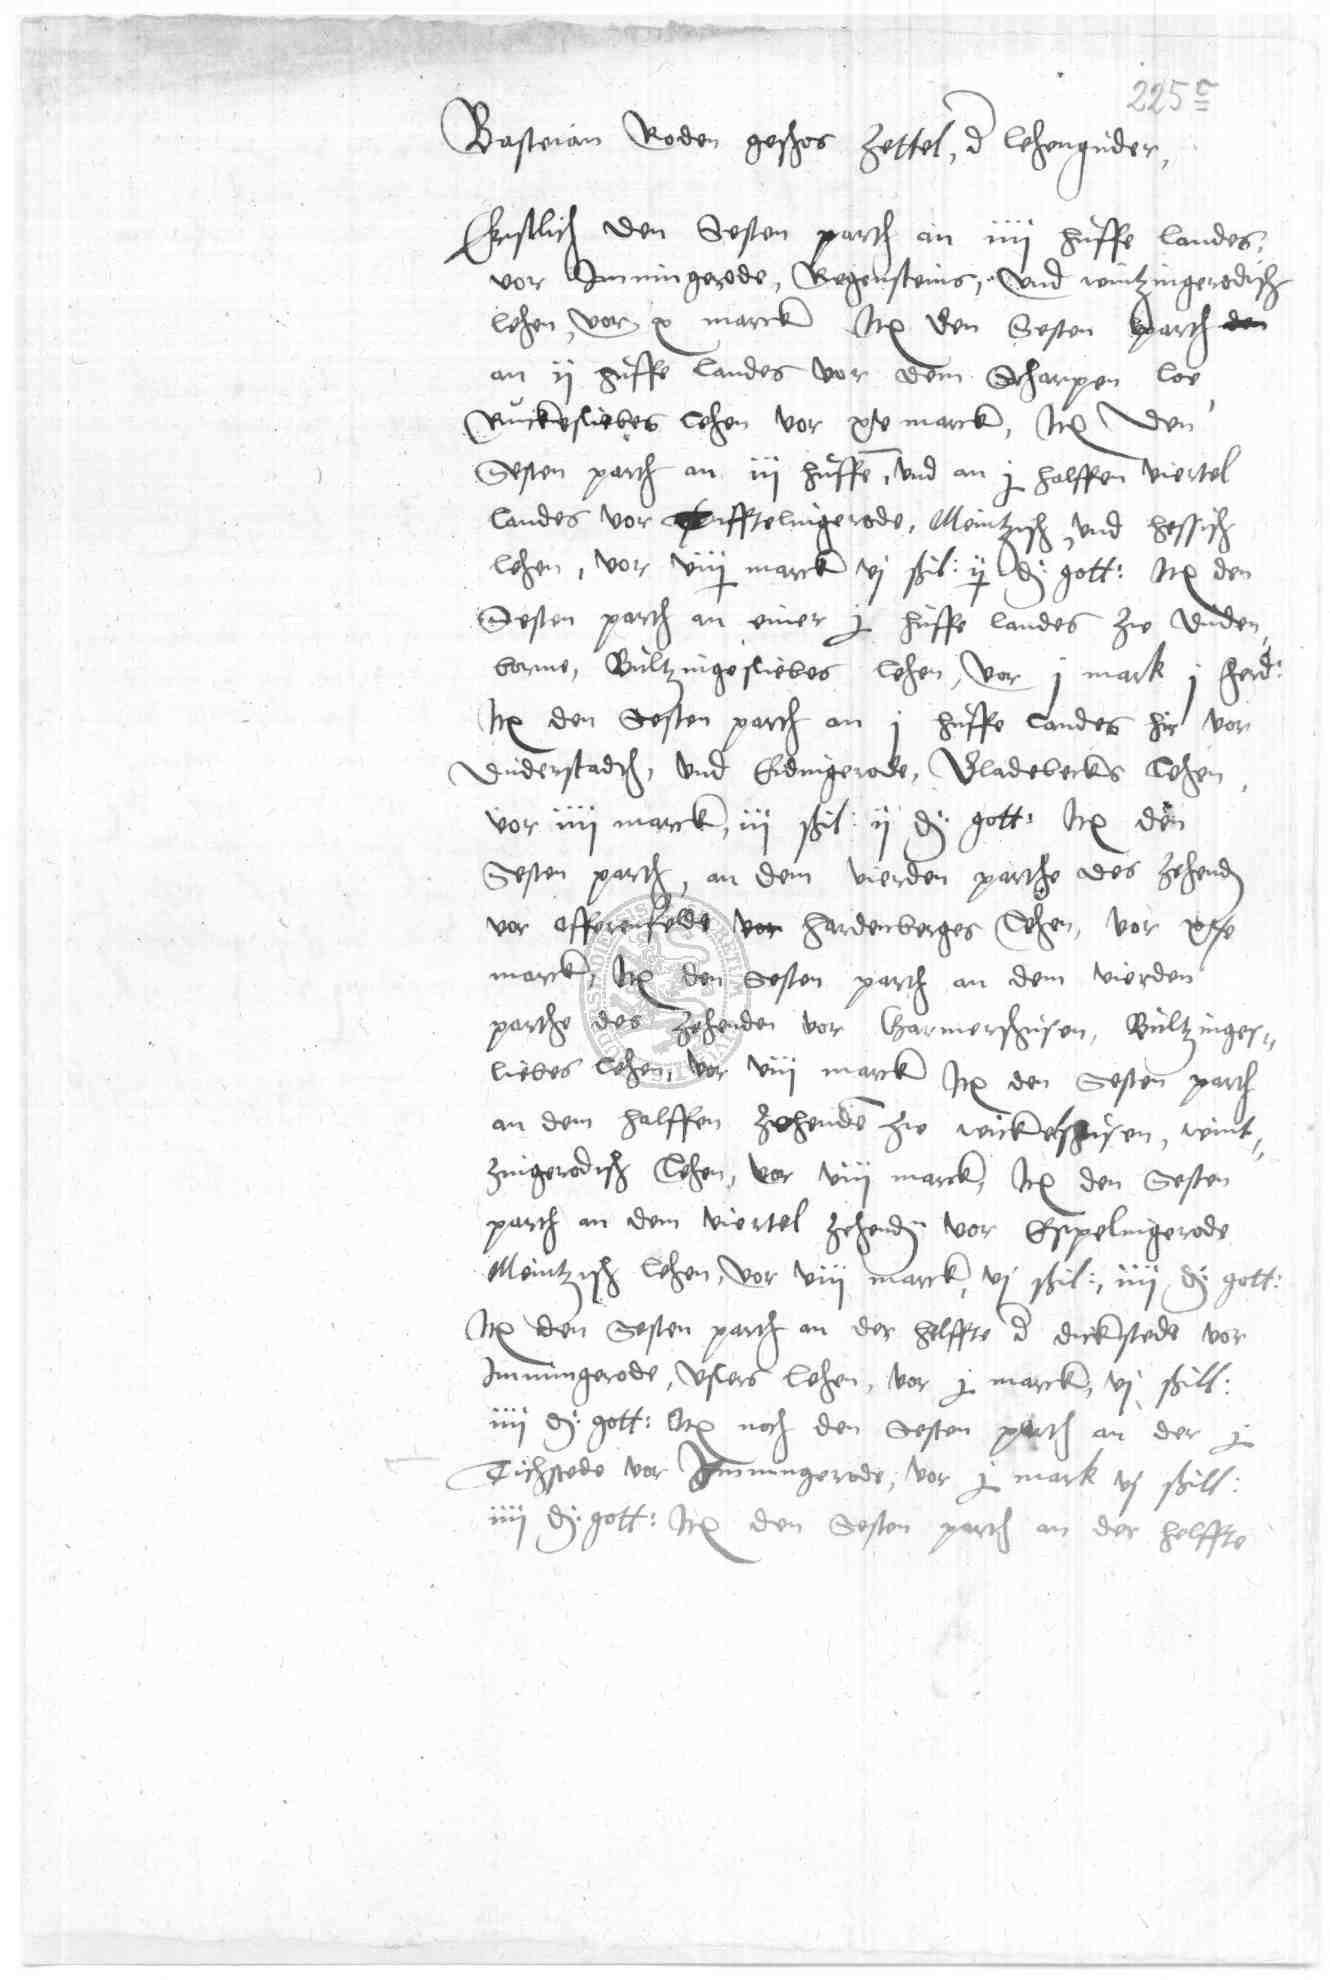 225c
Basteian Roden geschos zettel, d lehengüder,
Erstlich den Sesten parth an iiij hüffe landes,
vor Jmmingerode, Regensteins, vnd wintzingerodisch
lehen, vor x marck Jtem den Sesten parth den
an ij hüffe landes vor dem Scharpen loe,
Rückesliebes lehen vor marck, Jtem den
Sesten parth an iij hüffe, vnd an j halffen viertel
landes vor Tifftelingerode, Meintzisch vnd hessisch
lehen, vor viij marck vj schil: ij d: gott: Jtem den
Sesten parth an einer j hüffe landes zw düden
borne, Bültzingeslebes lehen, vor j mark j ferd:
Jtem den Sesten parth an j hüffe landes hir vor
Düderstadth, vnd Esdingerode, Vladebecks lehen,
vor iiij marck, iij schil: ij d: gott: Jtem den
Sesten parth, an dem vierden parthe des zehend
vor offerenfelde vor hardenberges lehen, vor
marck, Jtem den Sesten parth an dem vierden
parthe des zehenden vor Garmershüsen, Bültzinges=
liebes lehen, vor viij marck Jtem den Sesten parth
an dem halffen zehende zw wickelshüsen, wint=
zingerodisch lehen, vor viij marck, Jtem den Sesten
parth an dem viertel zehend vor Espelingerode
Meintzisch lehen, vor viij marck, vj schil:, iiij d: gott:
Jtem den Sesten parth an der helffte d dickstede vor
Jmmingerode, Vslers lehen, vor j marck, vj schill:
iiij d: gott: Jtem noch den Sesten parth an der j
Tichstede vor Jmmingerode, vor j mark vj schill:
iiij d: gott: Jtem den Sesten parth an der helffte